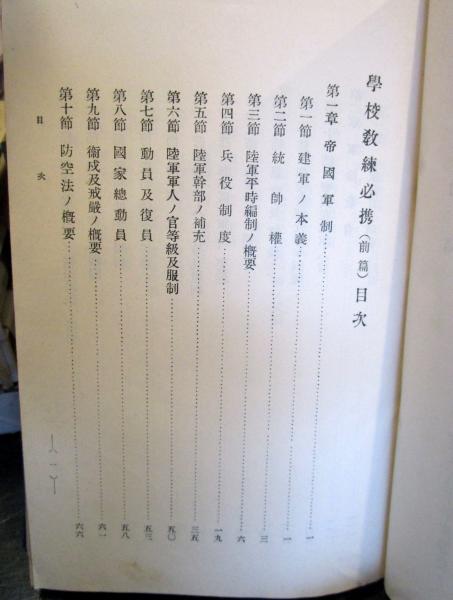 學校敎練必携（前篇）目次
第一章 帝國軍制……一
第一節 建軍ノ本義……一
第二節 統帥權……三
第三節 陸軍平時編制ノ概要……六
第四節 兵役制度……一九
第五節 陸軍幹部ノ補充……三五
第六節 陸軍軍人ノ官等級及服制……五〇
第七節 動員及復員……五三
第八節 國家總動員……五八
第九節 衞戍及戒嚴ノ概要……六一
第十節 防空法ノ概要……六六
目次